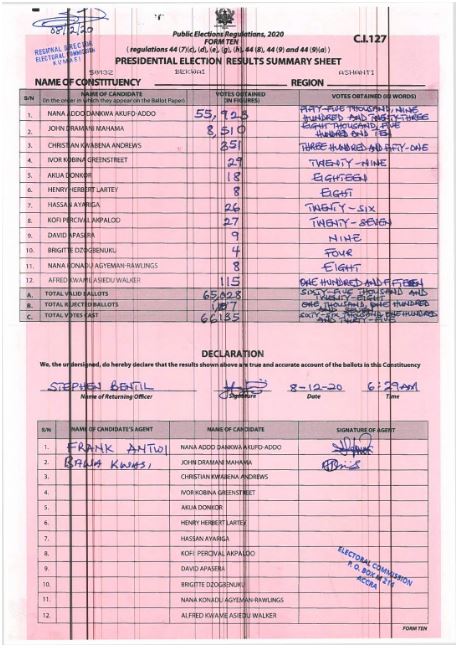 08/12/20
REGIONAL DIRECTOR
ELECTORAL COMMISSION
KUMASI
Public Elections Regulations, 2020
FORM TEN
C.I.127
( regulations 44 (7)(c), (d), (e), (g), (h), 44 (8), 44 (9) and 44 (9)(a) )
PRESIDENTIAL ELECTION RESULTS SUMMARY SHEET
BEKWAI ASHANTI
NAME OF CONSTITUENCY REGION
S/N NAME OF CANDIDATE (In the order in which they appear on the Ballot Paper) VOTES OBTAINED (IN FIGURES) VOTES OBTAINED (IN WORDS)
1. NANA ADDO DANKWA AKUFO-ADDO 55,923 FIFTY-FIVE THOUSAND, NINE HUNDRED AND TWENTY-THREE
2. JOHN DRAMANI MAHAMA 8,510 EIGHT THOUSAND, FIVE HUNDRED AND TEN
3. CHRISTIAN KWABENA ANDREWS 351 THREE HUNDRED AND FIFTY-ONE
4. IVOR KOBINA GREENSTREET 29 TWENTY-NINE
5. AKUA DONKOR 18 EIGHTEEN
6. HENRY HERBERT LARTEY 8 EIGHT
7. HASSAN AYARIGA 26 TWENTY-SIX
8. KOFI PERCIVAL AKPALOO 27 TWENTY-SEVEN
9. DAVID APASERA 9 NINE
10. BRIGITTE DZOGBENUKU 4 FOUR
11. NANA KONADU AGYEMAN-RAWLINGS 8 EIGHT
12. ALFRED KWAME ASIEDU WALKER 115 ONE HUNDRED AND FIFTEEN
A. TOTAL VALID BALLOTS 65,028 SIXTY-FIVE THOUSAND AND TWENTY-EIGHT
B. TOTAL REJECTED BALLOTS ONE THOUSAND, ONE HUNDRED AND SEVEN
C. TOTAL VOTES CAST 66,135 SIXTY-SIX THOUSAND, ONE HUNDRED AND THIRTY-FIVE
DECLARATION
We, the undersigned, do hereby declare that the results shown above are true and accurate account of the ballots in this Constituency
STEPHEN BENTIL 8-12-20 6:29AM
Name of Returning Officer Signature Date Time
S/N NAME OF CANDIDATE'S AGENT NAME OF CANDIDATE SIGNATURE OF AGENT
1. FRANK ANTWI NANA ADDO DANKWA AKUFO-ADDO
2. BAWA KWASI JOHN DRAMANI MAHAMA
3. CHRISTIAN KWABENA ANDREWS
4. IVOR KOBINA GREENSTREET
5. AKUA DONKOR
6. HENRY HERBERT LARTEY
7. HASSAN AYARIGA
8. KOFI PERCIVAL AKPALOO
9. DAVID APASERA
10. BRIGITTE DZOGBENUKU
11. NANA KONADU AGYEMAN-RAWLINGS
12. ALFRED KWAME ASIEDU WALKER
ELECTORAL COMMISSION
P. O. BOX M 214
ACCRA
FORM TEN